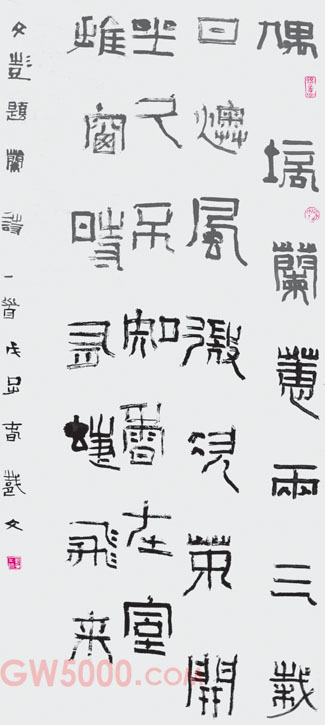 偶培蘭蕙兩三栽
日燠風微次第開
坐久不知香在室
推窗時有蝶飛来
文彭題蘭詩一首戊子春戴文
GW5000.com